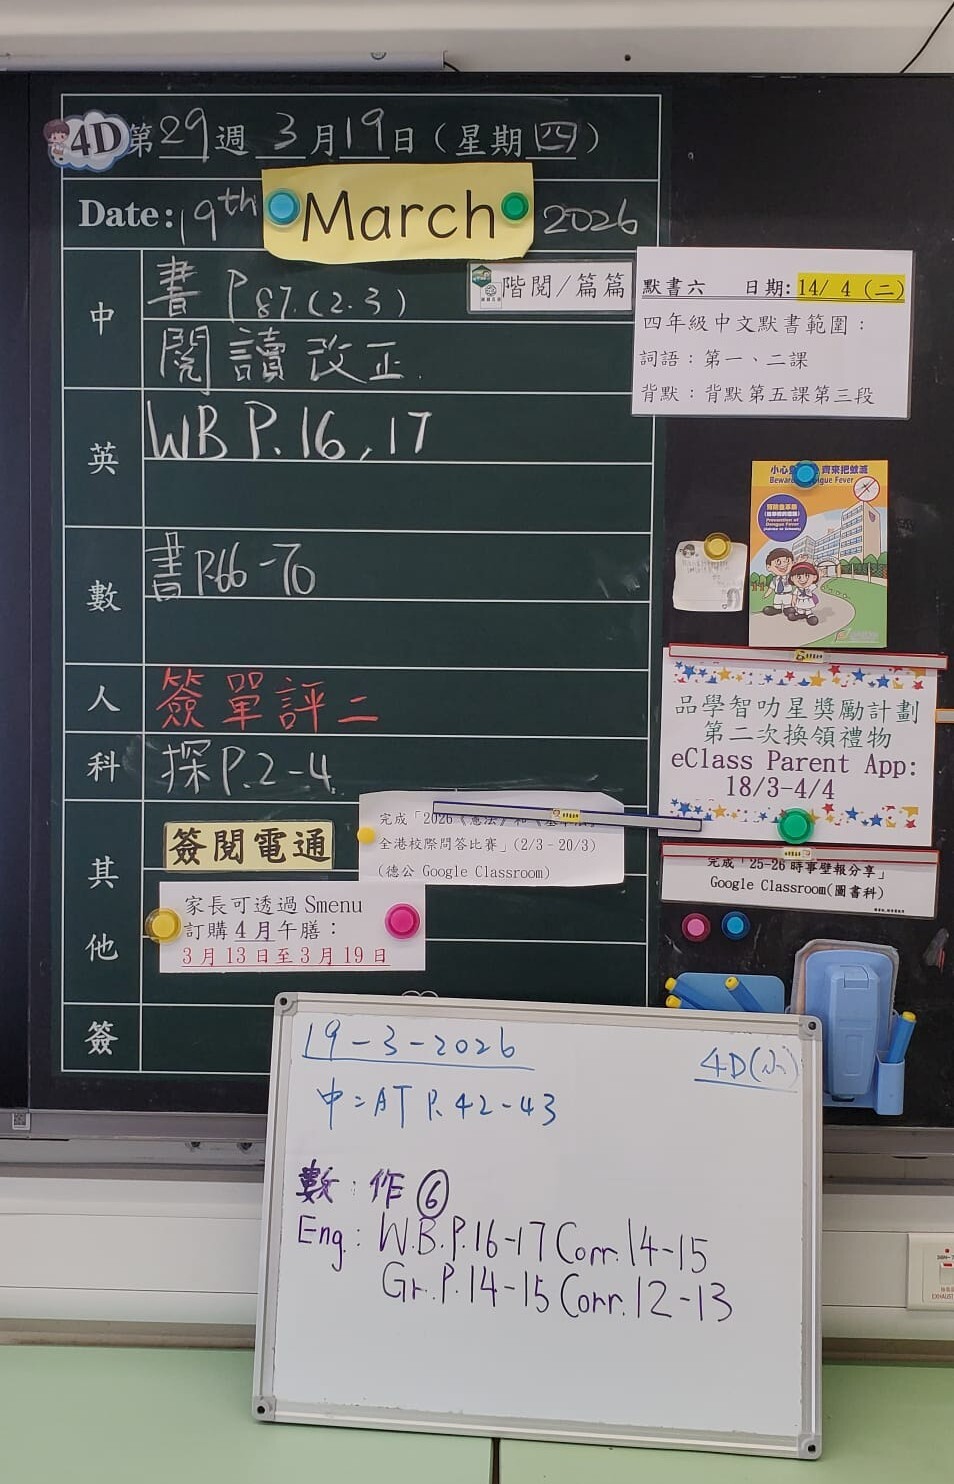 4D 第 29 週 3 月 19 日 ( 星期 四 )
Date: 19th March 2026
中
書 P87.(2.3)
階閱/篇篇
閱讀改正.
英
WB P.16,17
數
書P.66-70
人
簽單評二
科
探P.2-4
其他
簽閱電通
完成「2026《憲法》和《基本法》
全港校際問答比賽」(2/3-20/3)
(德公 Google Classroom)
家長可透過 Smenu
訂購 4 月午膳：
3 月 13 日至 3 月 19 日
簽
默書六 日期: 14/ 4 (二)
四年級中文默書範圍：
詞語：第一、二課
背默：背默第五課第三段
齊來把蚊滅
Dengue Fever
Prevention of
Dengue Fever
品學智叻星獎勵計劃
第二次換領禮物
eClass Parent App:
18/3-4/4
完成「25-26 時事壁報分享」
Google Classroom(圖書科)
19-3-2026
4D(小)
中=AT P.42-43
數：作⑥
Eng: W.B.P.16-17 Corr.14-15
Gr.P.14-15 Corr.12-13